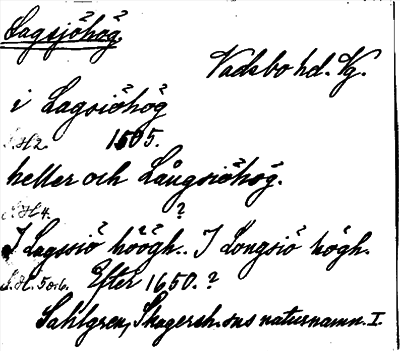 Lagsjöhög
Vadsbo hd. Vg.
i Lagsiöhög
S.H 2. 1505.
heller och Långsiöhög.
S.H 4. ?
I Lagssiö höögh. I Longsiö högh.
S.H. 5 o. 6. Efter 1650. ?
Sahlgren, Skagersh:sns naturnamn. I.